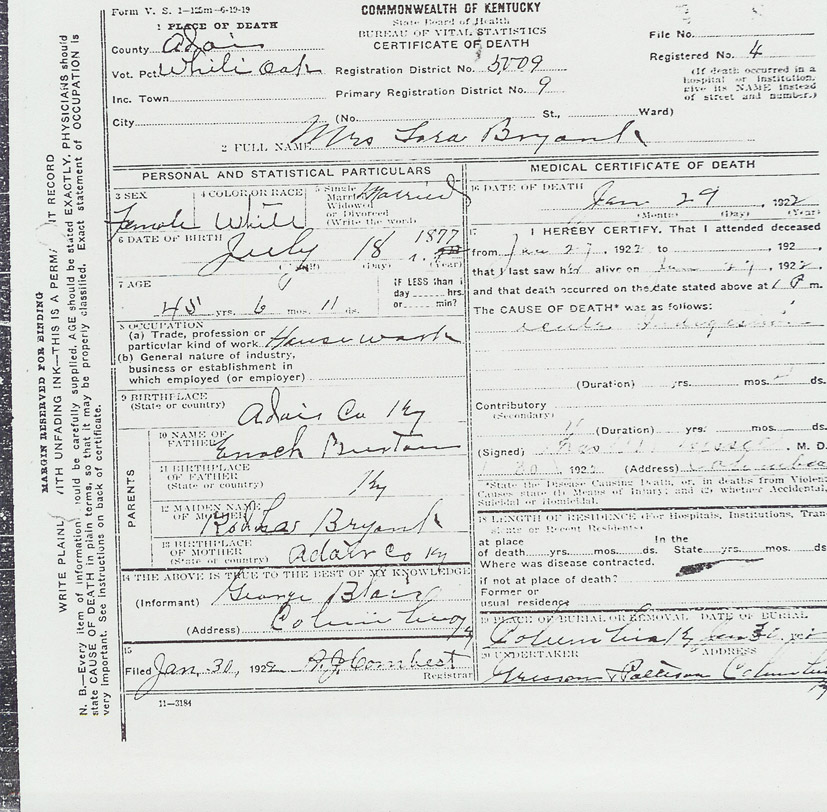 Form V. S. 1-125m-6-19-19
COMMONWEALTH OF KENTUCKY
State Board of Health
BUREAU OF VITAL STATISTICS
CERTIFICATE OF DEATH
1 PLACE OF DEATH
County Adair
Vot. Pct. White Oak
Inc. Town
City
Registration District No. 5009
Primary Registration District No. 9
(No. St., Ward)
File No.
Registered No. 4
(If death occurred in a
hospital or institution,
give its NAME instead
of street and number.)
2 FULL NAME Mrs Bryant
PERSONAL AND STATISTICAL PARTICULARS
3 SEX
Female
4 COLOR OR RACE
White
5 Single
Married
Widowed
or Divorced
(Write the word)
Married
6 DATE OF BIRTH
July 18 1877
(Day) (Year)
7 AGE
45 yrs. 6 mos. 11 ds.
IF LESS than 1
day hrs.
or min?
8 OCCUPATION
(a) Trade, profession or
particular kind of work House work
(b) General nature of industry,
business or establishment in
which employed (or employer)
9 BIRTHPLACE
(State or country) Adair Co Ky
PARENTS
10 NAME OF
FATHER Enoch Burton
11 BIRTHPLACE
OF FATHER
(State or country) Ky
12 MAIDEN NAME
OF MOTHER Bryant
13 BIRTHPLACE
OF MOTHER
(State or country) Adair Co Ky
14 THE ABOVE IS TRUE TO THE BEST OF MY KNOWLEDGE
(Informant) George Blair
(Address)
15
Filed Jan. 30, 1922 Combest
Registrar
11-3184
MEDICAL CERTIFICATE OF DEATH
16 DATE OF DEATH
Jan 29, 1922
(Month) (Day) (Year)
17 I HEREBY CERTIFY, That I attended deceased
from Jan 27, 1922 to , 192
that I last saw her alive on , 1922,
and that death occurred on the date stated above at 1 P m.
The CAUSE OF DEATH* was as follows:
acute Indigestion
(Duration) yrs. mos. ds.
Contributory
(Secondary)
(Duration) yrs. mos. ds.
(Signed) M. D.
1922 (Address) Columbia
*State the Disease Causing Death, or, in deaths from Violent
Causes state (1) Means of Injury; and (2) whether Accidental,
Suicidal or Homicidal.
18 LENGTH OF RESIDENCE (For Hospitals, Institutions, Tran
sients or Recent Residents)
at place In the
of death yrs. mos. ds. State yrs. mos. ds.
Where was disease contracted.
if not at place of death?
Former or
usual residence
19 PLACE OF BURIAL OR REMOVAL DATE OF BURIAL
Columbia Ky Jan 30
20 UNDERTAKER ADDRESS
MARGIN RESERVED FOR BINDING
WRITE PLAINL WITH UNFADING INK—THIS IS A PERMA IT RECORD
N. B.—Every item of information should be carefully supplied. AGE should be stated EXACTLY. PHYSICIANS should
state CAUSE OF DEATH in plain terms, so that it may be properly classified. Exact statement of OCCUPATION is
very important. See Instructions on back of certificate.